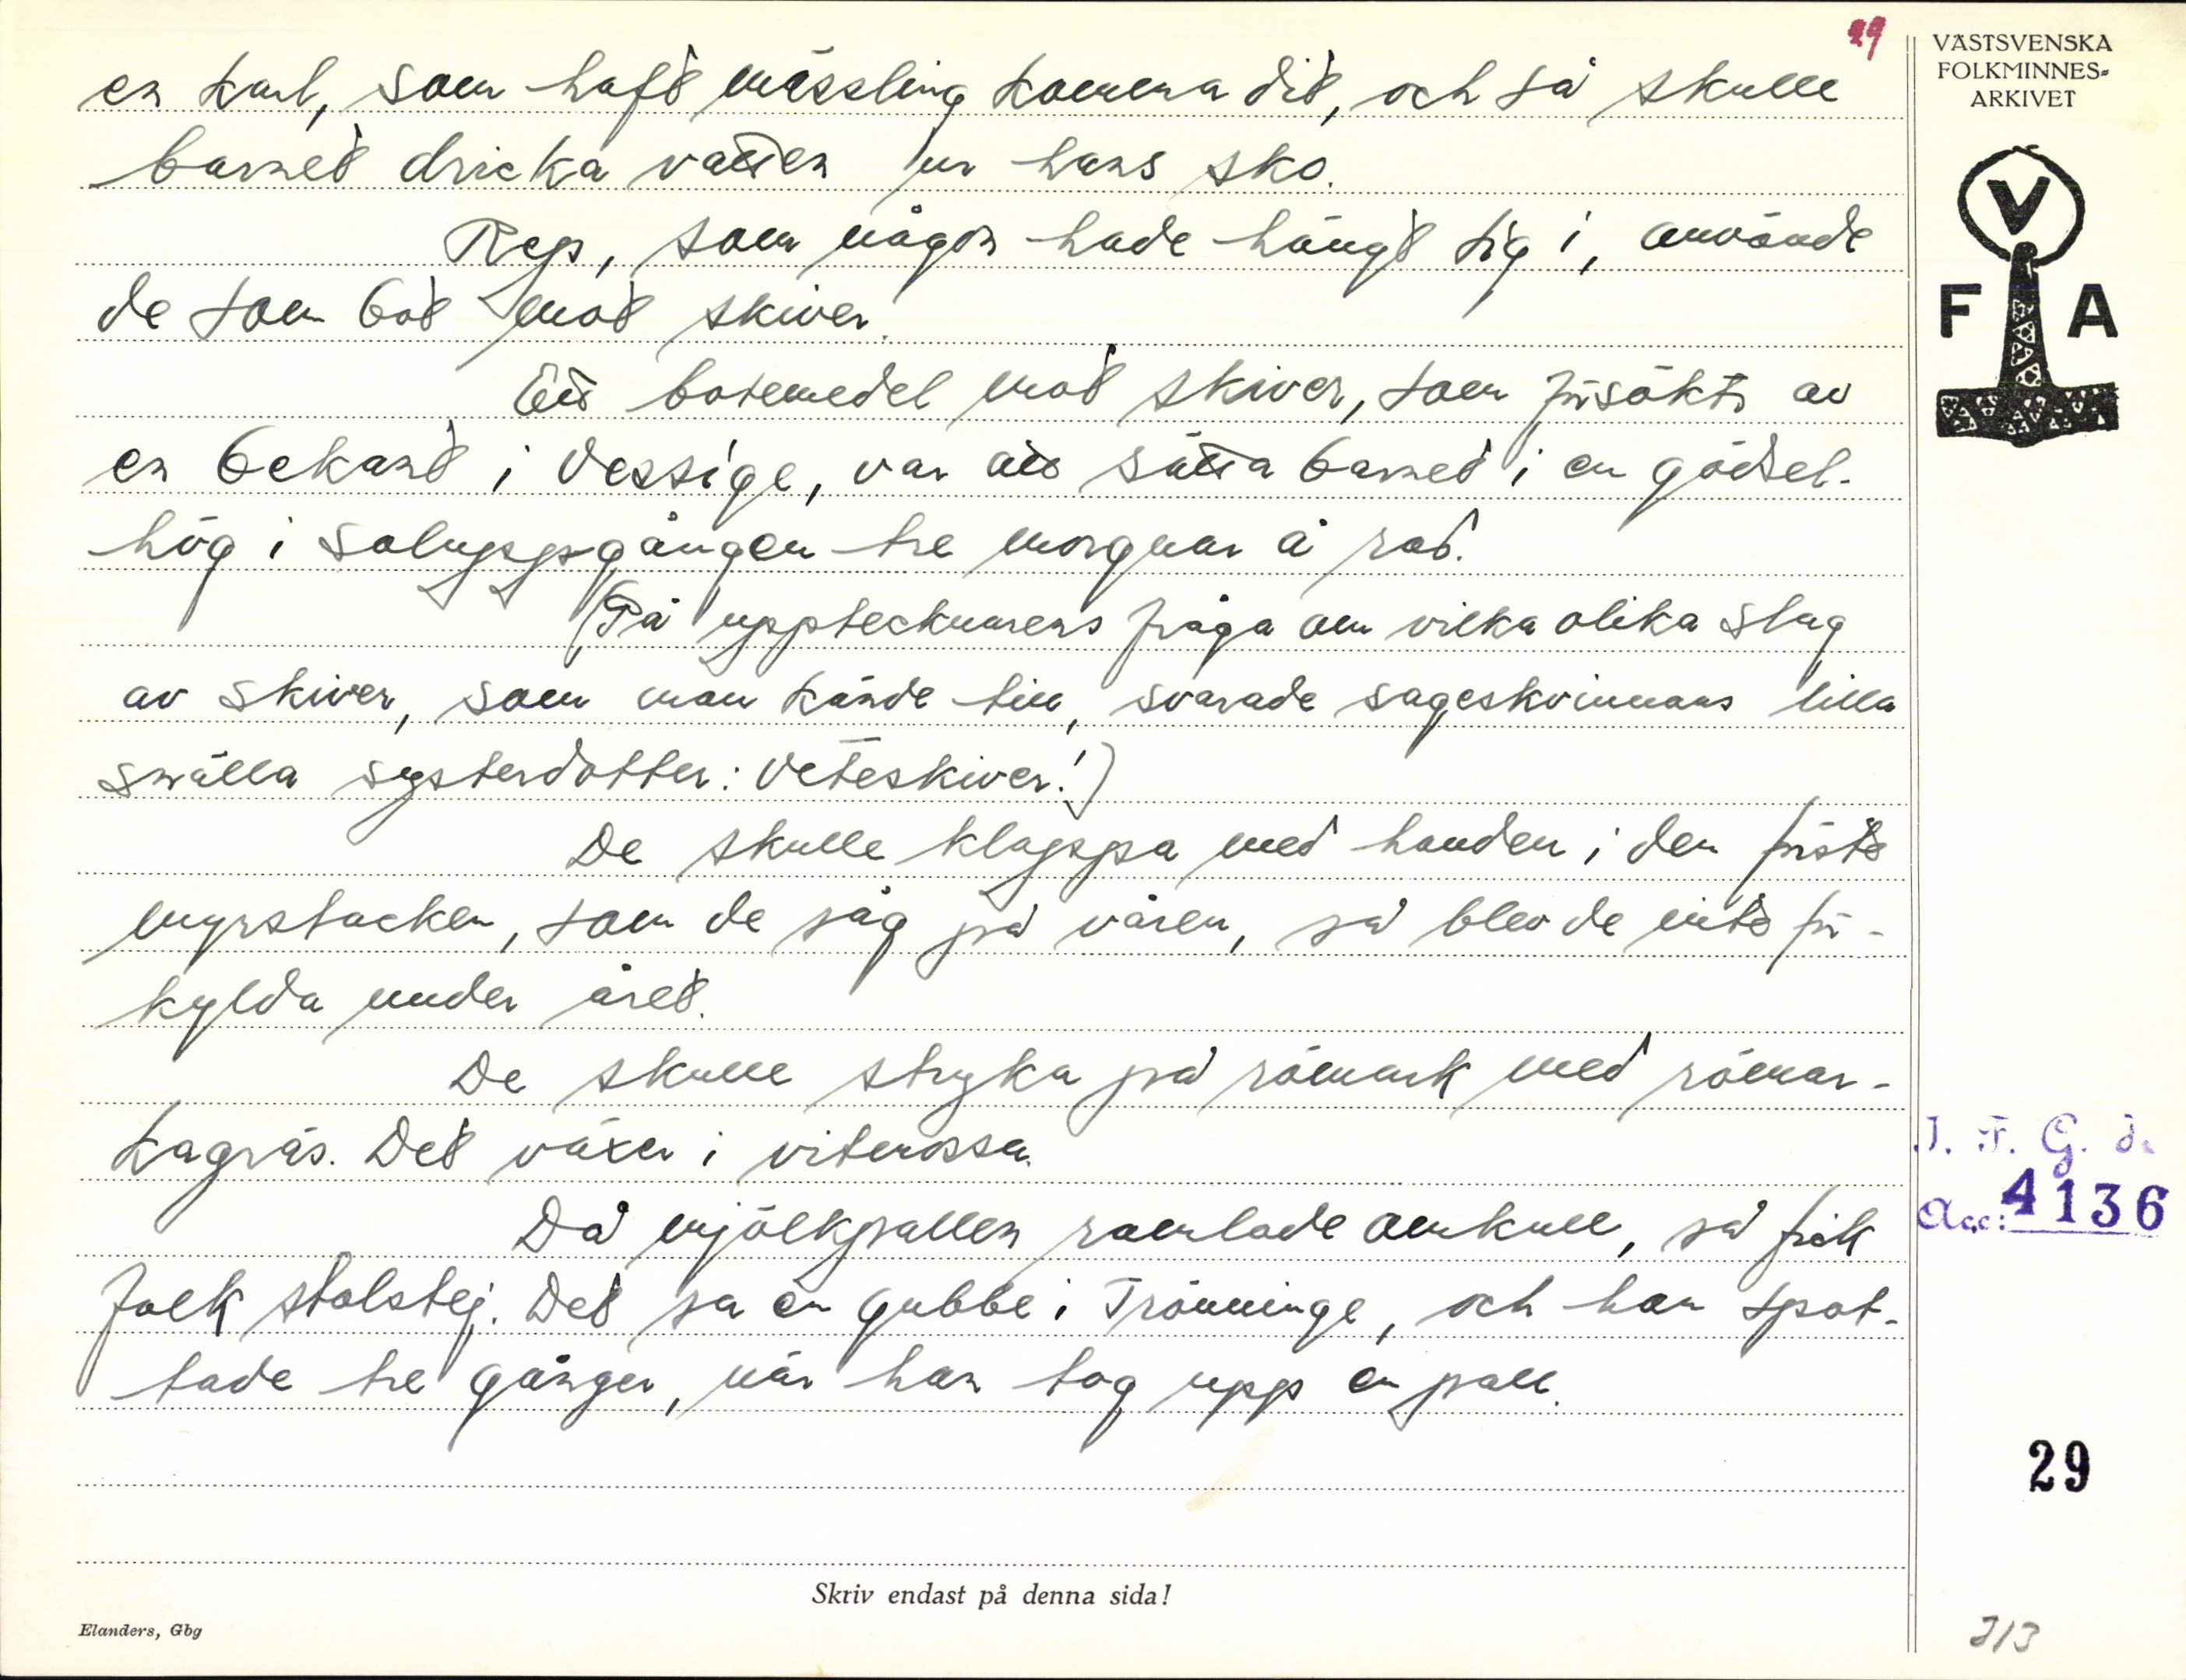 29
VÄSTSVENSKA
FOLKMINNES-
ARKIVET
V
F A
en karl, som haft mässling komma dit, och så skulle
barnet dricka vatten ur hans sko.
Rep, som någon hade hängt sig i, använde
de som bot mot skiver.
Ett botemedel mot skiver, som försökts av
en bekant i Vessige, var att sätta barnet i en gödsel-
hög i soluppgången tre morgnar å rad.
(På upptecknarens fråga om vilka olika slag
av skiver, som man kände till, svarade sageskvinnans lilla
snälla systerdotter: Veteskiver!)
De skulle klappa med handen i den första
myrstacken, som de såg på våren, så blev de inte för-
kylda under året.
De skulle stryka på römark med römar-
kagräs. Det växer i vitemossa.
Då mjölkpallen ramlade omkull, så fick
folk stolstej. Det sa en gubbe i Trönninge, och han spot-
tade tre gånger, när han tog upp en pall.
I. F. G. s.
Acc: 4136
29
Skriv endast på denna sida!
Elanders, Gbg